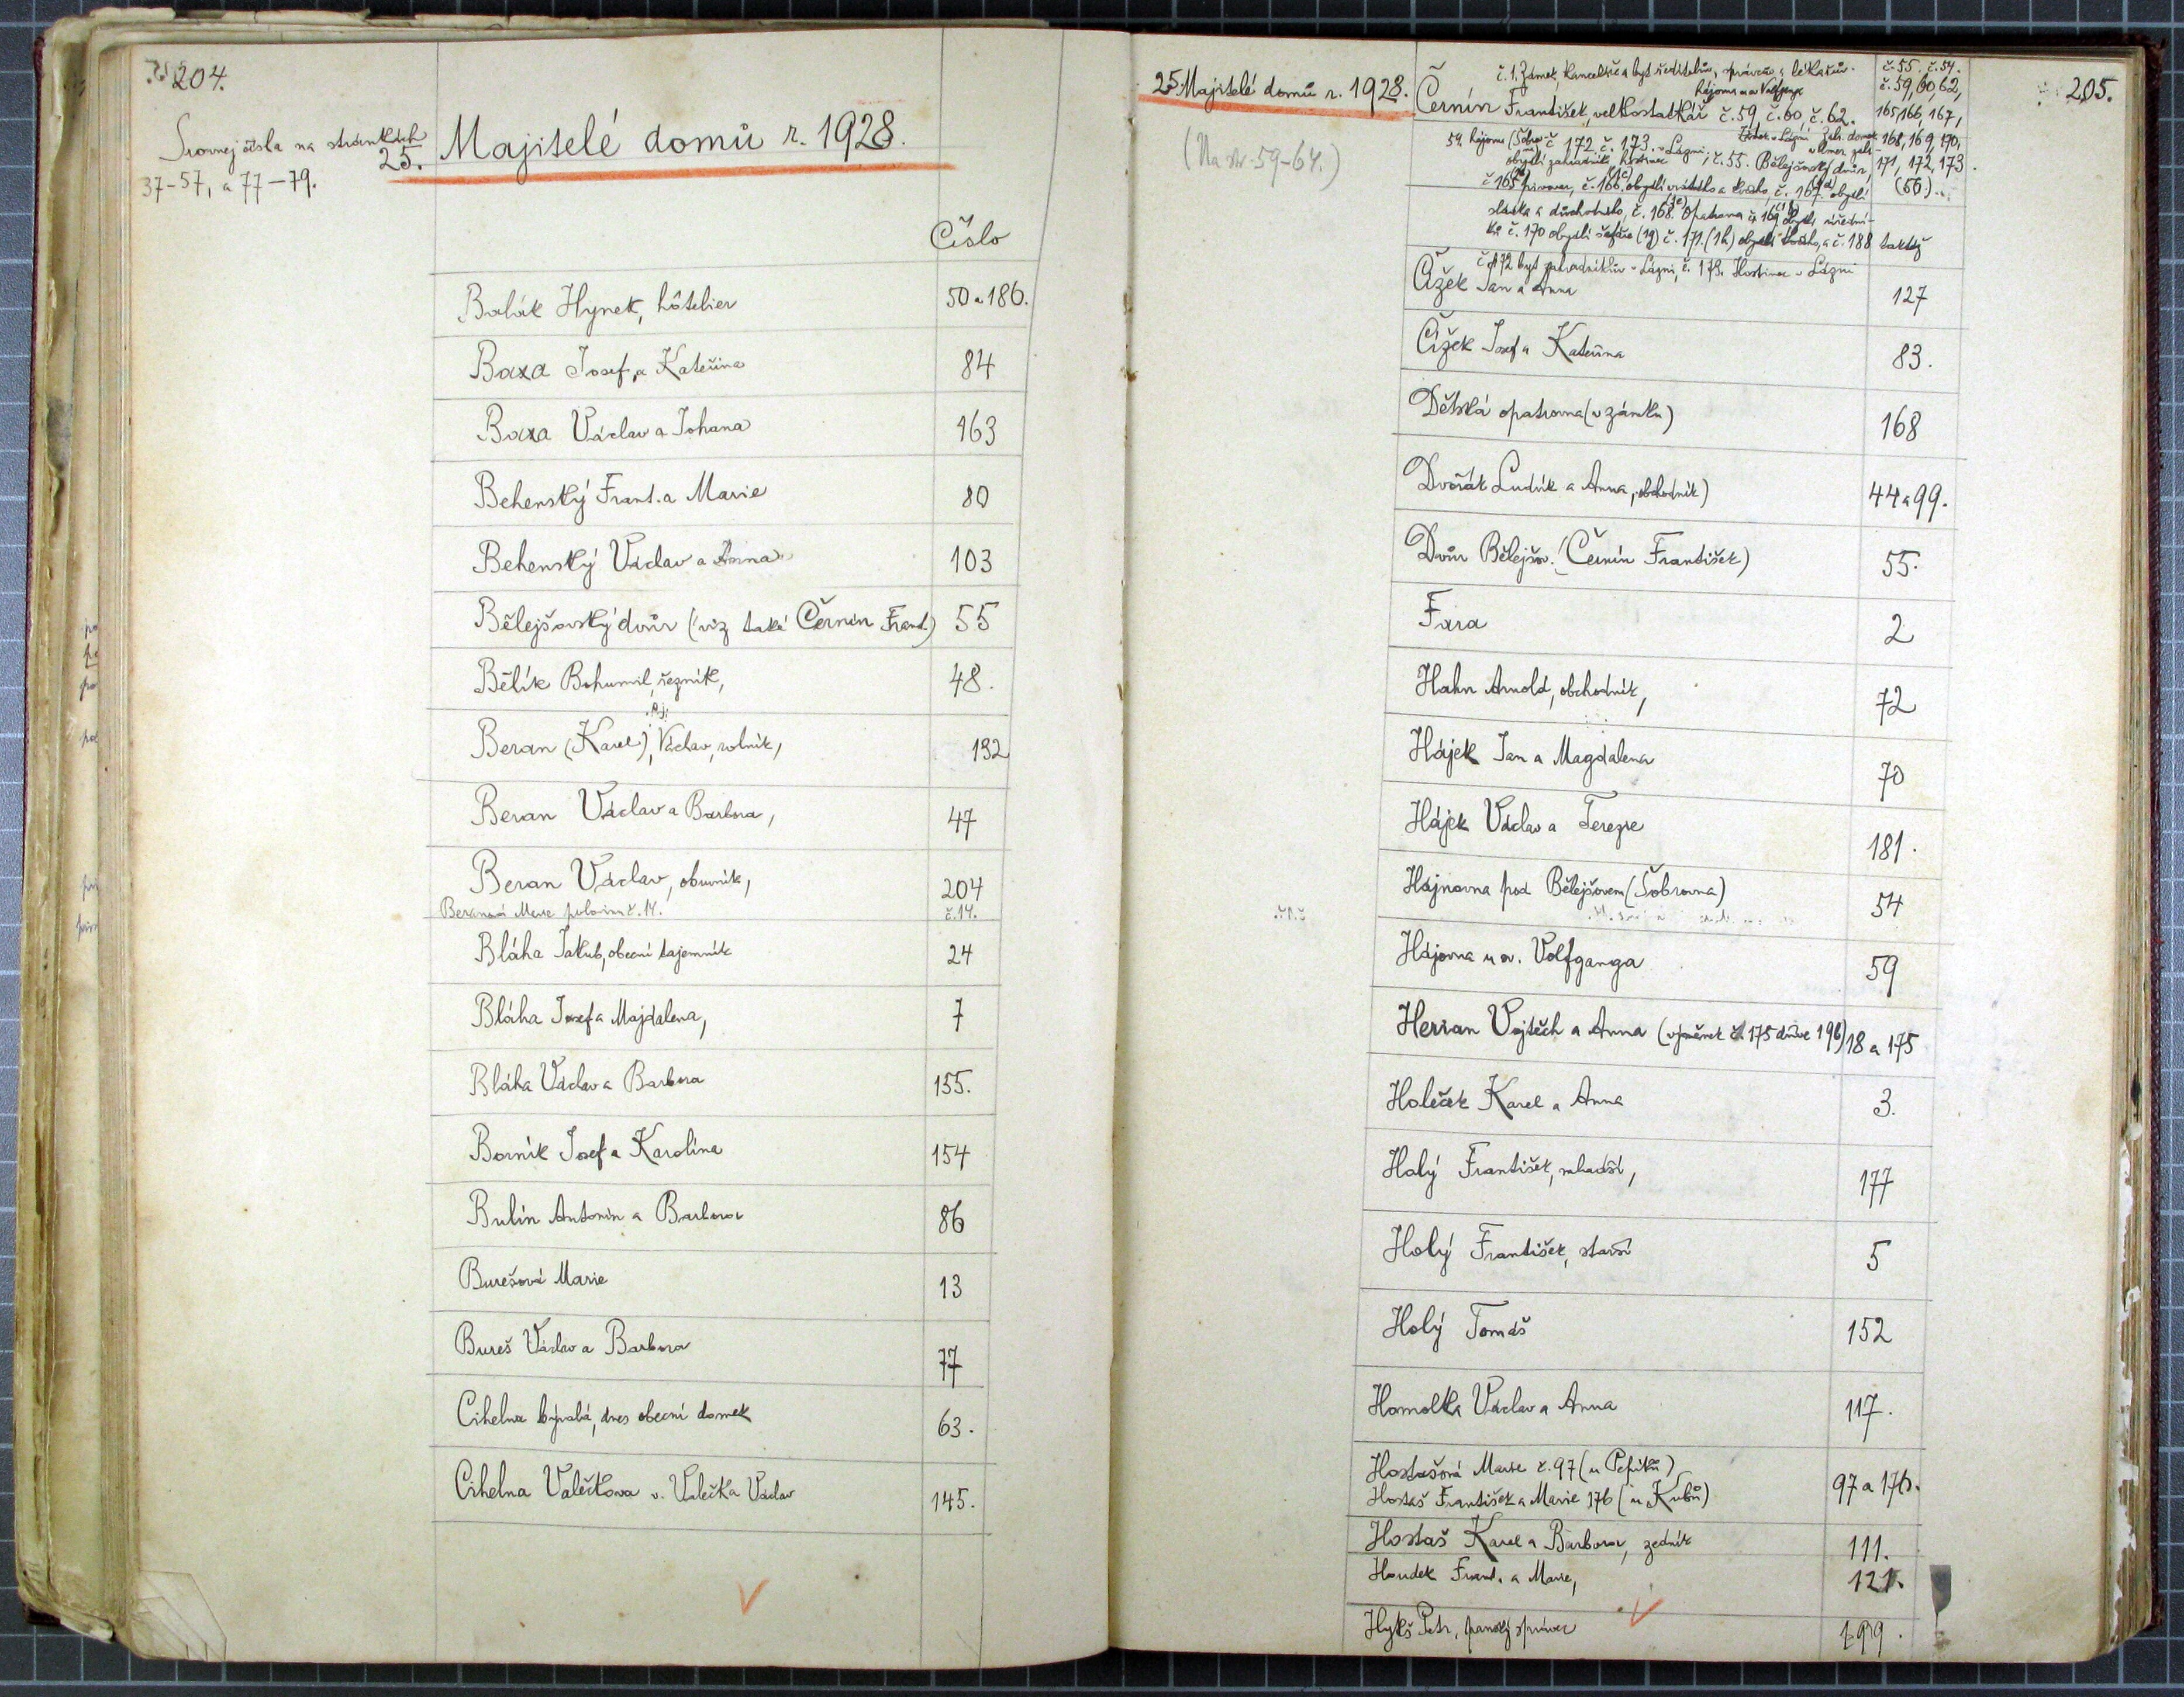 204.
Srovnej čísla na stránkách
37-57, a 77-79.
25. Majitelé domů r. 1928.
Číslo
Balák Hynek, hôtelier 50 a 186.
Baxa Josef, a Kateřina 84
Baxa Václav a Johana 163
Behenský Frant. a Marie 80
Behenský Václav a Anna 103
Bělejšovský dvůr (viz také Černín Frant.) 55
Bělík Bohumil, řezník, 48.
Beran (Karel), Václav, rolník, 132
Beran Václav a Barbora, 47
Beran Václav, obuvník, 204
Beranová Marie č. 14. č. 14.
Bláha Jakub, obecní tajemník 24
Bláha Josef a Majdalena, 7
Bláha Václav a Barbora 155.
Borník Josef a Karolina 154
Bulín Antonín a Barbora 86
Burešová Marie 13
Bureš Václav a Barbora 77
Cihelna bývalá, dnes obecní domek 63.
Cihelna Valečkova v. Valečka Václav 145.
205.
25 Majitelé domů r. 1928.
(Na str. 59-64.)
č. 1. Zámek, kancelář a byt ředitelův, správcův a lékařův. č. 55. č. 54.
Hájovna u sv. Volfganga č. 59, 60, 62,
Černín František, velkostatkář č. 59, č. 60, č. 62. 165, 166, 167,
54. hájovna č. 172, č. 173. v Lázni 168, 169, 170,
obydlí zahradníka, hostinec, č. 55. Bělejšovský dvůr, 171, 172, 173.
č. 165 pivovar, č. 166. obydlí vrátného a č. 167. obydlí (56.)
sládka a důchodního, č. 168. Opatrovna č. 169 obydlí úřední-
ků č. 170 obydlí šafáře (1g) č. 171. (1h) obydlí a č. 188 taktéž
č. 172 byt zahradníkův v Lázni, č. 173. Hostinec v Lázni
Čížek Jan a Anna 127
Čížek Josef a Kateřina 83.
Dětská opatrovna (v zámku) 168
Dvořák Ludvík a Anna, obchodník) 44 a 99.
Dvůr Bělejšov. (Černín František) 55.
Fara 2
Hahn Arnold, obchodník, 72
Hájek Jan a Magdalena 70
Hájek Václav a Terezie 181.
Hájnovna pod Bělejšovem (Šobrovna) 54
Hájovna u sv. Volfganga 59
Herian Vojtěch a Anna (výměnek č. 175 dříve 196) 18 a 175
Holeček Karel a Anna 3.
Holý František, mladší, 177
Holý František, starší 5
Holý Tomáš 152
Homolka Václav a Anna 117.
Hostašová Marie č. 97 (u Pepíků)
Hostaš František a Marie 176 (u Kubů) 97 a 176.
Hostaš Karel a Barbora, zedník 111.
Houdek Frant. a Marie, 121.
Hykš Petr, panský správce 199.